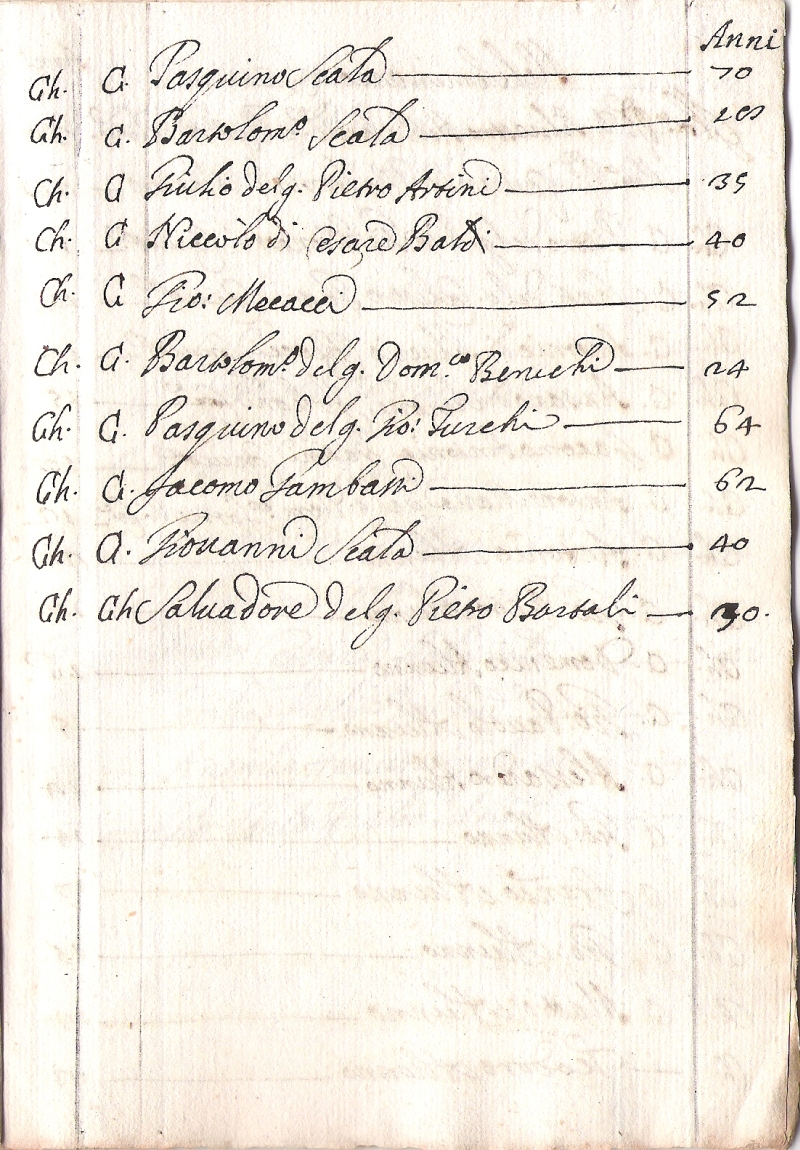 Anni
Ch. C. Pasquino Scala 70
Ch. C. Bartolom.o Scala
Ch. C Giulio del q. Pietro Artini 35
Ch. C Niccolò di Cesare Baldi 40
Ch. C Gio: Mecacci 52
Ch. C. Bartolom.o del q. Dom.co Benechi 24
Ch. C. Pasquino del q. Gio: Turchi 64
Ch. C. Jacomo Gambassi 62
Ch. C. Giovanni Scala 40
Ch. Ch Salvadore del q. Pietro Bartali 30.